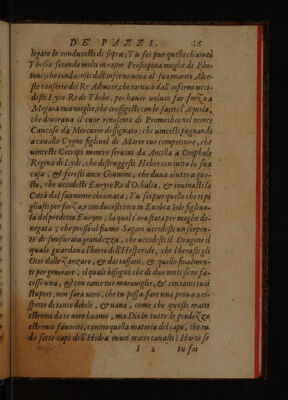 DE' PAZZI. 56
legato lo conducesti di sopra; Tu sei pur quello ch'aiutò
Theseo secondo molti in rapir Proserpina moglie di Plu-
tone; che conducesti dall'inferno viva al suo marito Alce-
ste consorte del Re Admeto; che tornato dall'inferno ucci-
desti Lyco Re di Thebe, per hauer voluto far forza a
Megara tua moglie; che traffigesti con le saette l'Aquila,
che diuoraua il cuor rinascente di Prometheo nel monte
Caucaso da Mercurio
a cauallo Cygno figliuol di Marte tuo competitore, che
uincesti Cercopi mentre seruiui da Ancilla a Omphale
Regina di Lydi, che distruggesti Hebeo con tutta la sua
casa, & feresti anco Giunone, che daua aiuto a que-
sto, che uccideste Euryto Re d'Ochalia, & rouinasti la
Città dal suo nome chiamata; Tu sei pur quello che ti pi
gliasti per forza, e conducesti teco in Eubea Iole figliuo-
la del predetto Euryto, la qual t'era stata per moglie de-
negata; che presso al fiume Sagari uccidesti un serpen-
te di smisurata grandezza, che uccidesti il Dragone il
quale guardaua l'horto dell'Hesperide, che liberasti gli
Otei dalle Zanzare, & da i taffani, & quello finalmen-
te per generare, il quale bisognò che di due notti se ne fa-
cesse una, & con tante tue marauiglie, & con tanti tuoi
stupori, non sarà uero, che tu possa fare una proua a ri-
spetto di tante debile, & uana, come che questi matti
estremi da te uero huomo, ma Dio in tutte le prodezze
estremo fauoriti, cauino quella materia del capo, che tu
da sette capi dell'Hidra in un tratto canasti? Horsù se
I 2 tu fai